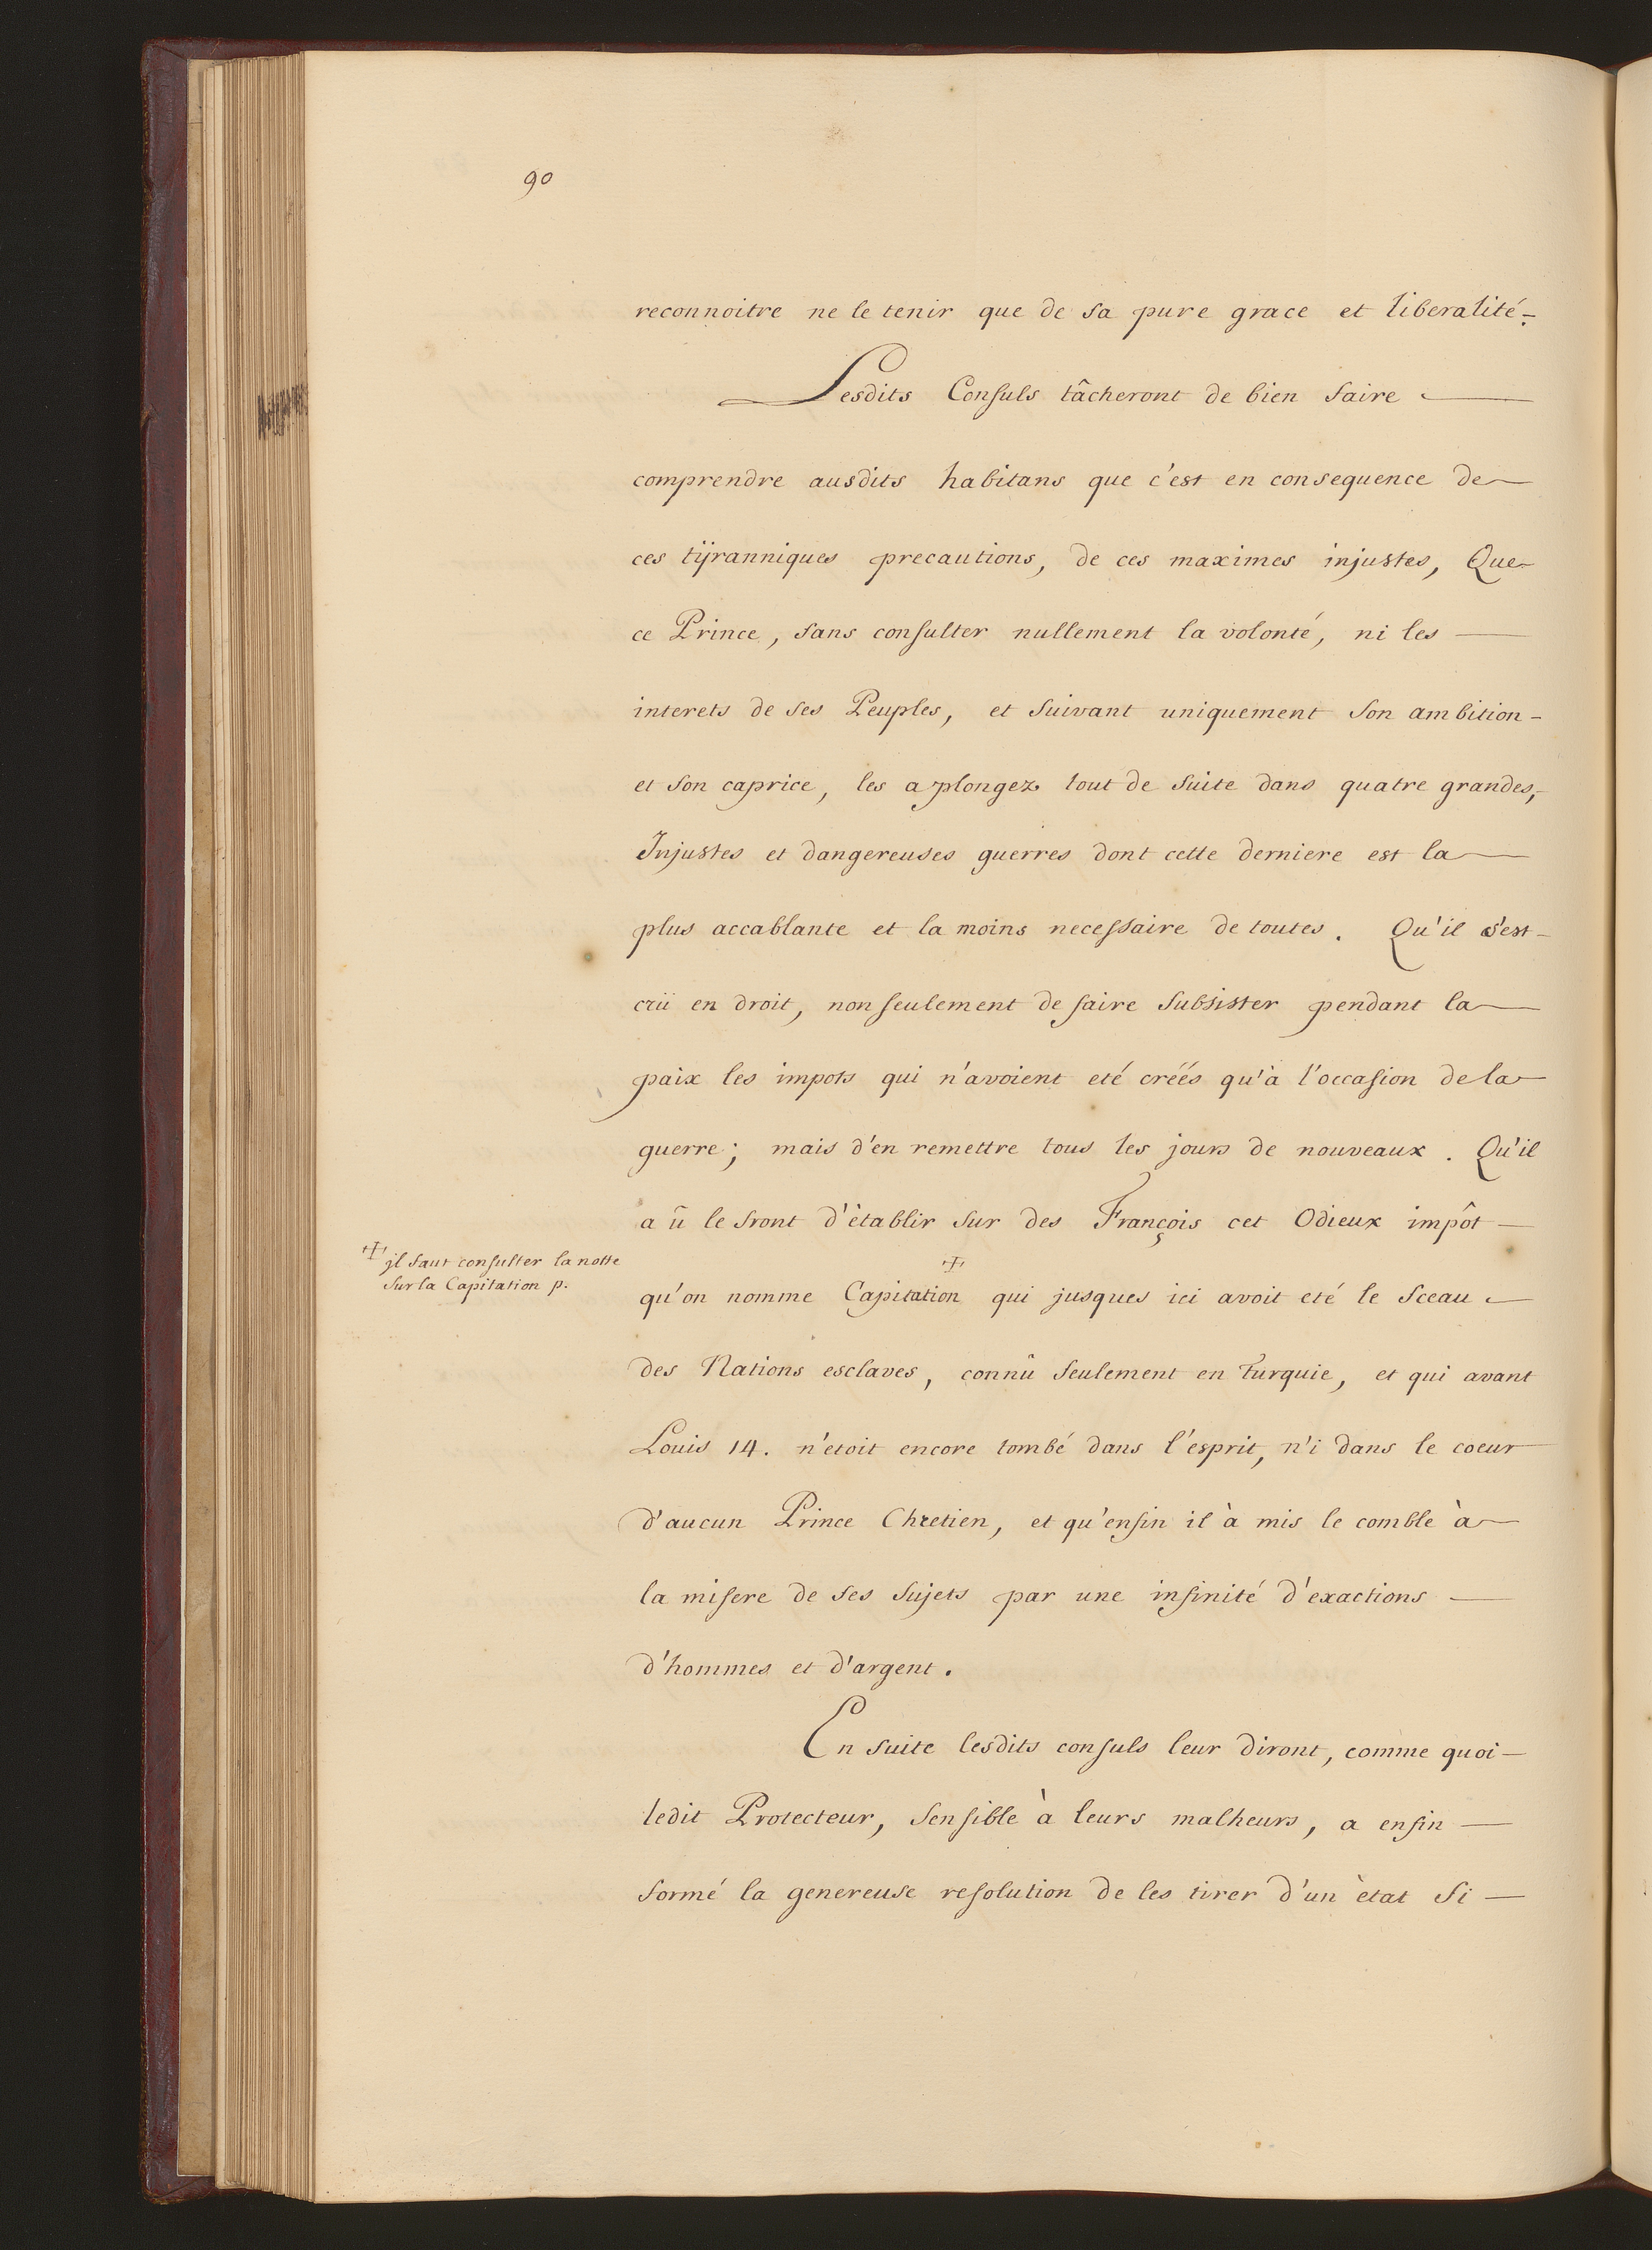 90
reconnoitre ne le tenir que de sa pure grace et liberalité.
Lesdits Consuls tâcheront de bien faire
comprendre ausdits habitans que c'est en consequence de
ces tÿranniques precautions, de ces maximes injustes, Que
ce Prince, sans consulter nullement la volonté, ni les
interets de ses Peuples, et suivant uniquement son ambition
et son caprice, les a plongez tout de suite dans quatre grandes,
Injustes et dangereuses guerres dont cette derniere est la
plus accablante et la moins necessaire de toutes. Qu'il s'est
crü en droit, non seulement de faire subsister pendant la
paix les impots qui n'avoient eté créés qu'à l'occasion de la
guerre; mais d'en remettre tous les jours de nouveaux. Qu'il
a û le front d'établir sur des François cet Odieux impôt
☩ jl faut consulter la notte
sur la Capitation p.
qu'on nomme Capitation ☩ qui jusques ici avoit eté le sceau
des Nations esclaves, connû seulement en turquie, et qui avant
Louis 14. n'etoit encore tombé dans l'esprit, n'i dans le coeur
d'aucun Prince Chretien, et qu'enfin il à mis le comble à
la misere de ses sujets par une infinité d'exactions
d'hommes et d'argent.
En suite lesdits consuls leur diront, comme quoi
ledit Protecteur, sensible à leurs malheurs, a enfin
formé la genereuse resolution de les tirer d'un ètat si